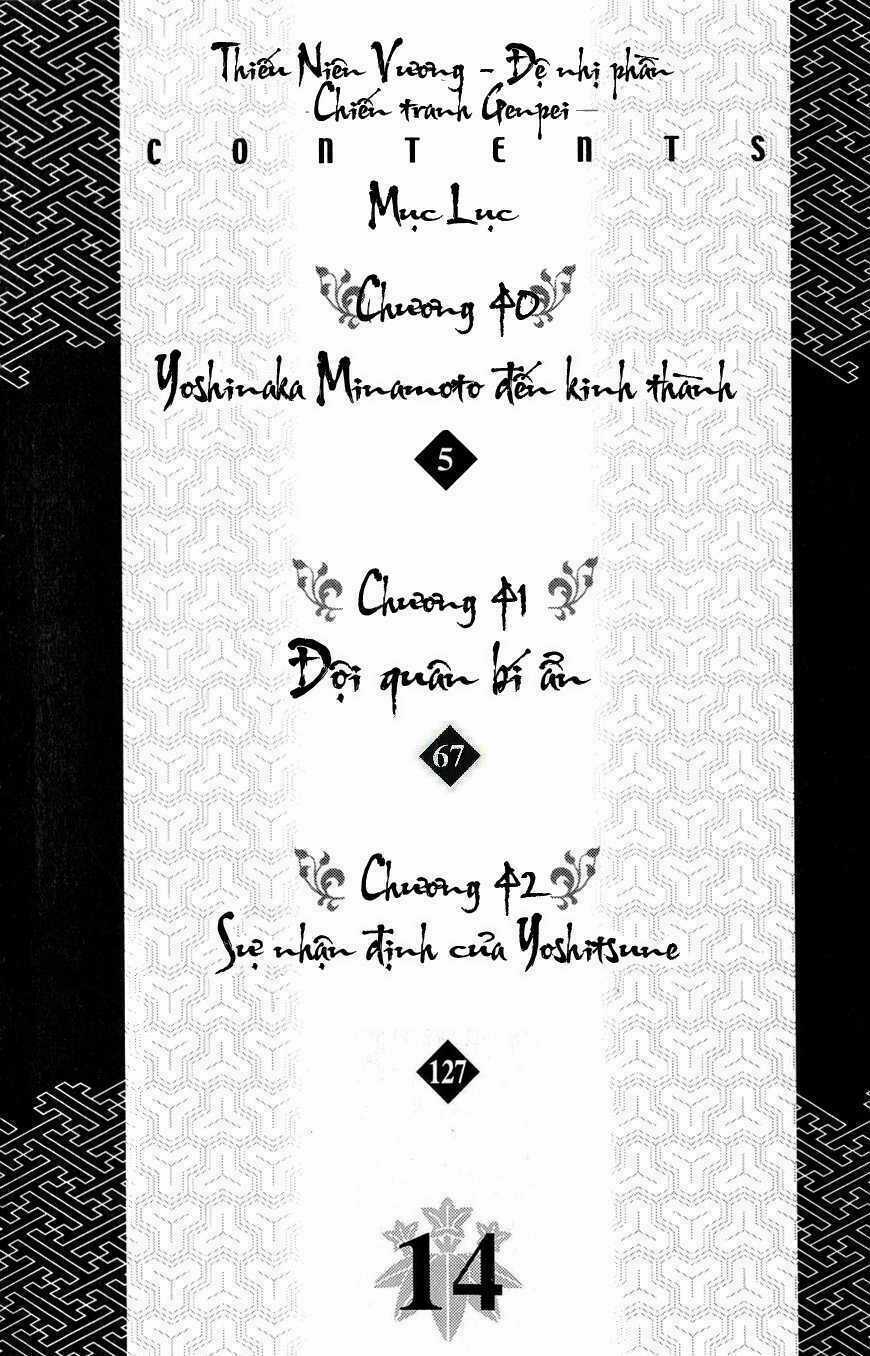 Thiếu Niên Vương - Đệ nhị phần
- Chiến tranh Genpei -
CONTENTS
Mục Lục
Chương 40
Yoshinaka Minamoto đến kinh thành
5
Chương 41
Đội quân bí ẩn
67
Chương 42
Sự nhận định của Yoshitsune
127
14